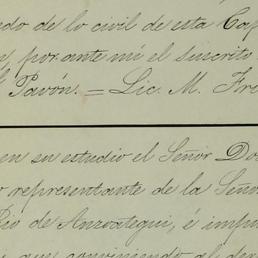 do de lo civil de esta Cap
por ante mí el suscrito
Pavón. = Lic. M. Fre
en su estudio el Señor Do
representante de la Seño
Rio de Anzoategui, é impu
que conviniendo al der